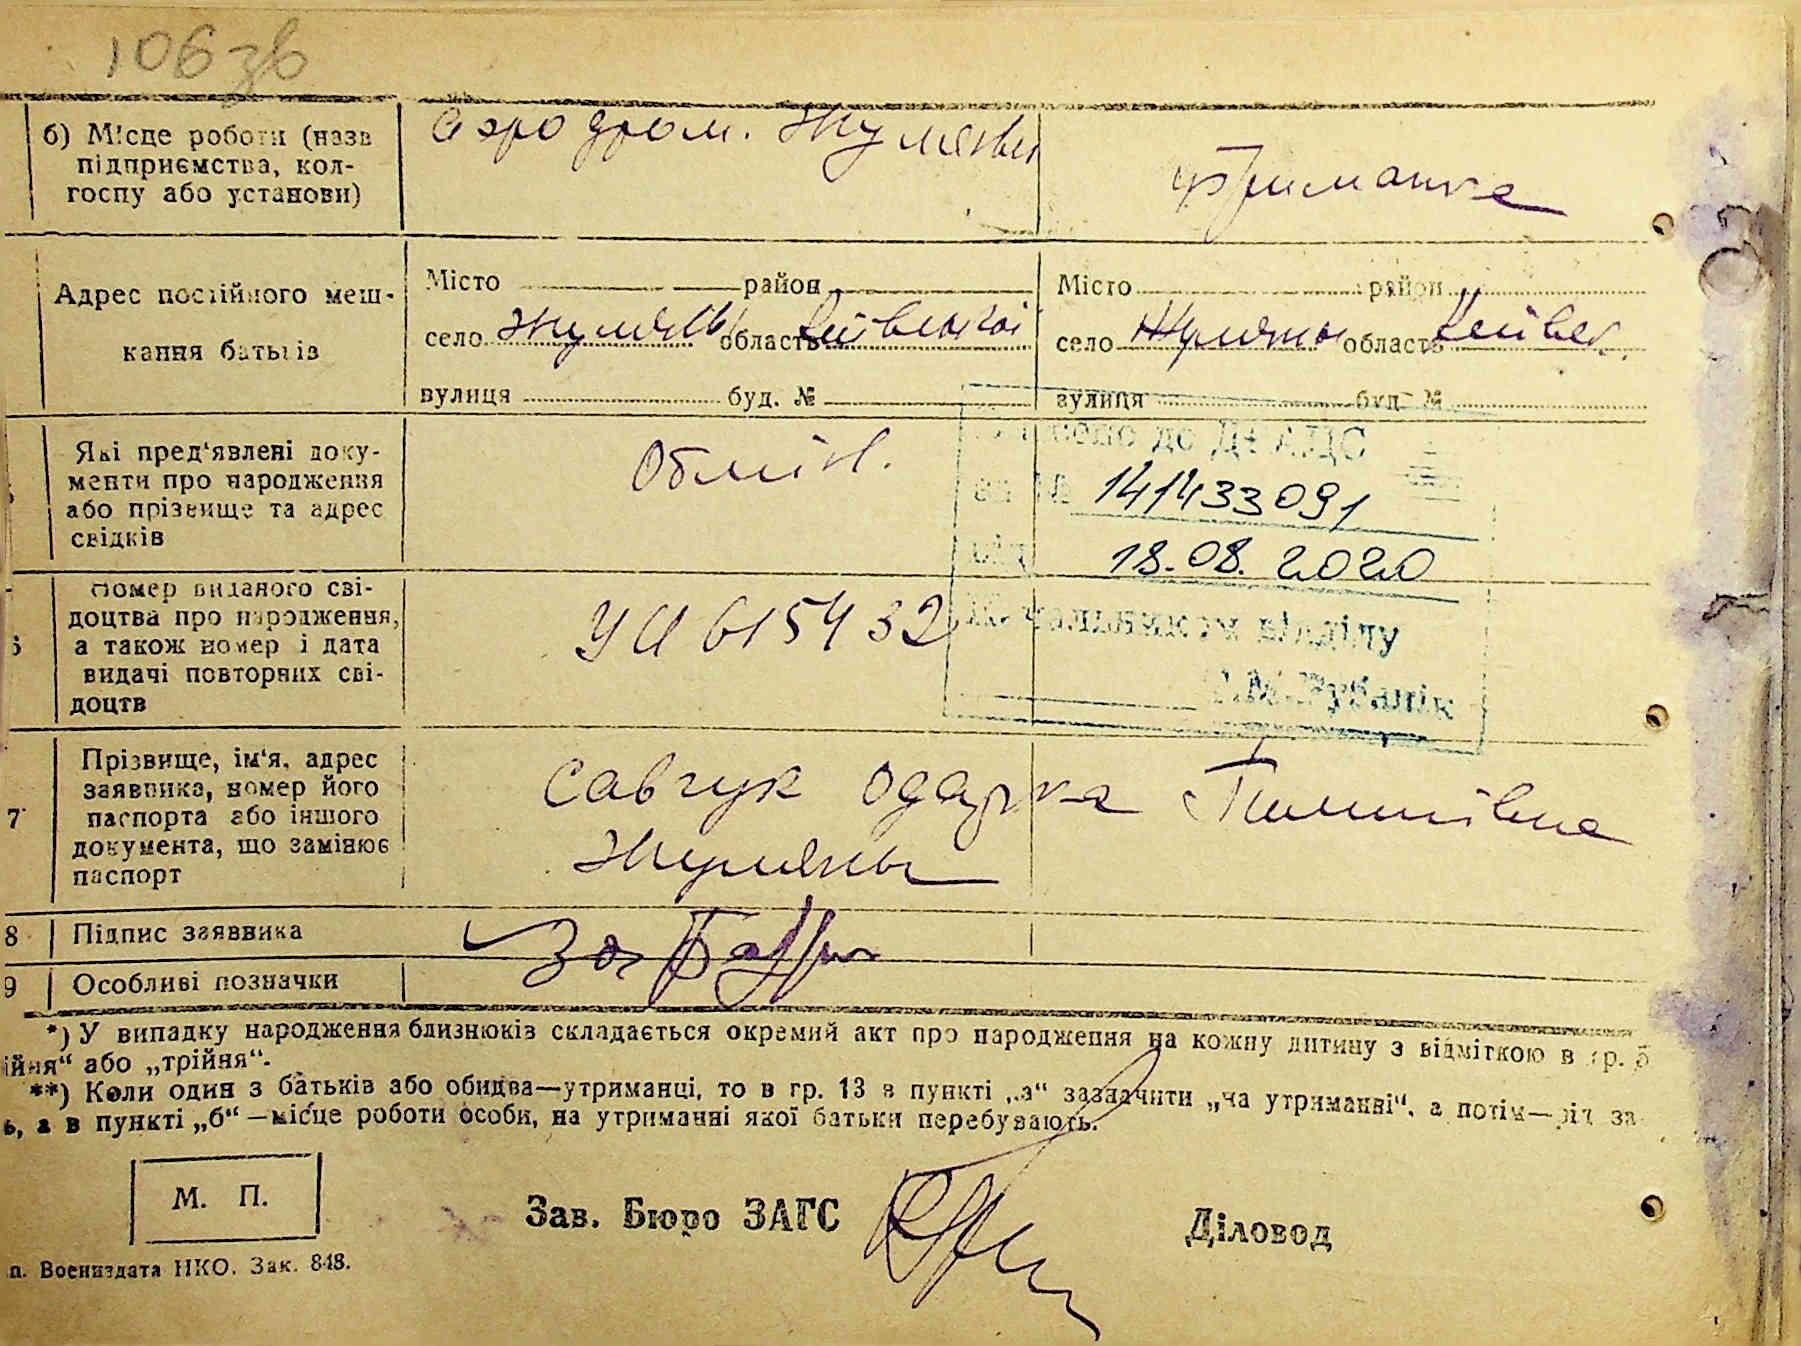 106 зв
б) Місце роботи (назв
підприємства, кол-
госпу або установи)
аэродром. Жуляны
Адрес постійного меш-
кання батьків
Місто район
село Жуляны область Київської
вулиця буд. №
Місто район
село Жуляны область Київс.
вулиця буд №
Які пред'явлені доку-
менти про народження
або прізвище та адрес
свідків
Обмін.
до ДРАЦС
за № 141433091
від 18.08.2020
відділу
6
Номер виданого сві-
доцтва про народження,
а також номер і дата
видачі повторних сві-
доцтв
615432
7
Прізвище, ім'я, адрес
заявника, номер його
паспорта або іншого
документа, що замінює
паспорт
Савчук Одарка
Жуляны
8 Підпис заяввика
За
9 Особливі позначки
*) У випадку народження близнюків складається окремий акт про народження на кожну дитину з відміткою в гр. 5
ійня“ або „трійня“.
**) Коли один з батьків або обидва—утриманці, то в гр. 13 в пункті „а“ зазначити „на утриманні“, а потім—рід за-
ь, а в пункті „б“—місце роботи особи, на утриманні якої батьки перебувають.
М. П.
Зав. Бюро ЗАГС
Діловод
п. Воениздата НКО. Зак. 848.